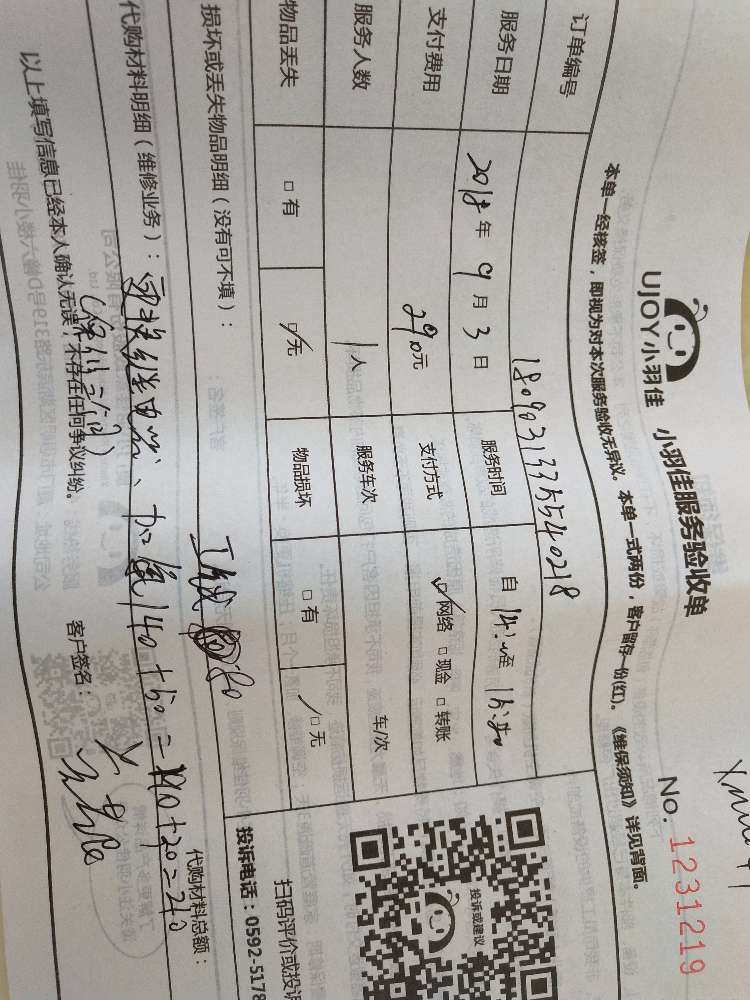 UJOY小羽佳 小羽佳服务验收单
No. 1231219
本单一经核签，即视为对本次服务验收无异议。本单一式两份，客户留存一份(红)。《维保须知》详见背面。
订单编号 1809031335540218
服务日期 2018年9月3日 服务时间 自
支付费用 290元 支付方式 网络 现金 转账
服务人数 1人 服务车次 车/次
物品丢失 有 无 物品损坏 有 无
损坏或丢失物品明细（没有可不填）：
代购材料明细（维修业务）：
代购材料总额：
更换继电器、加氟140+50=190+20=210
以上填写信息已经本人确认无误，不存在任何争议纠纷。
客户签名：
投诉或建议
扫码评价或投诉
投诉电话：0592-5178